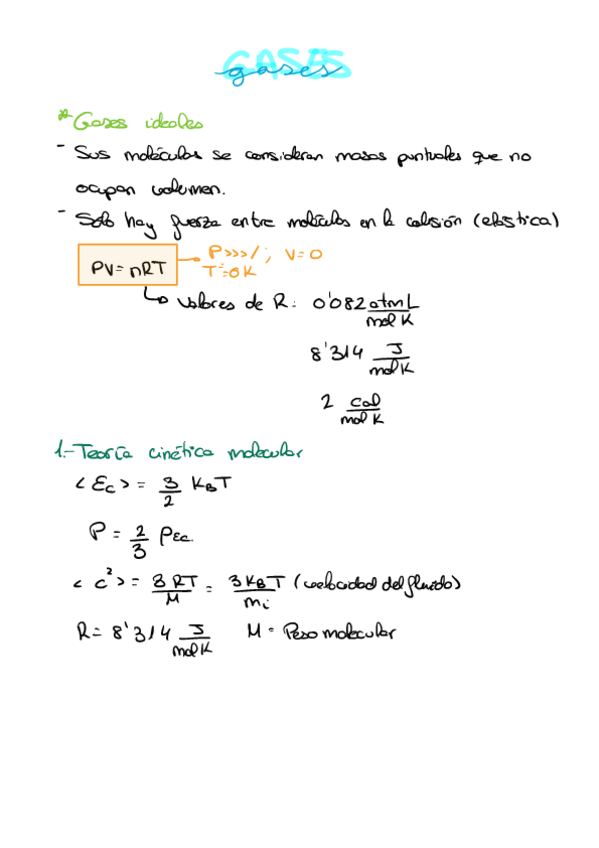 GASES
gases
* Gases ideales
- Sus moléculas se consideran masas puntuales que no
ocupan volumen.
- Solo hay fuerza entre moléculas en la colisión (elástica)
PV = nRT → P>>>/ ; V=0
T=0K
↳ valores de R: 0'082 atm L / mol K
8'314 J / mol K
2 cal / mol K
1.- Teoría cinética molecular
< Ec > = 3/2 KBT
P = 2/3 ρEc.
< c² > = 3RT/M = 3KBT/mi (velocidad del fluido)
R = 8'314 J / mol K M = Peso molecular